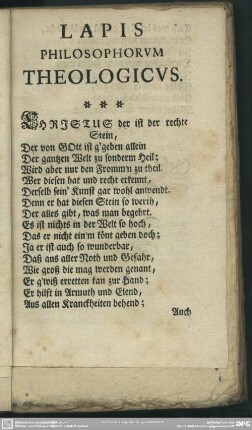 LAPIS
PHILOSOPHORVM
THEOLOGICVS.
* * *
CHRISTUS der ist der rechte
Stein,
Der von GOtt ist g'geben allein
Der gantzen Welt zu sonderm Heil;
Wird aber nur den Fromm'n zu theil.
Wer diesen hat und recht erkennt,
Derselb sein' Kunst gar wohl anwendt.
Denn er hat diesen Stein so werth,
Der alles gibt, was man begehrt.
Es ist nichts in der Welt so hoch,
Das er nicht ein'm könt geben doch;
Ja er ist auch so wunderbar,
Daß aus aller Noth und Gefahr,
Wie groß die mag werden genant,
Er g'wiß erretten kan zur Hand;
Er hilft in Armuth und Elend,
Aus allen Kranckheiten behend;
Auch